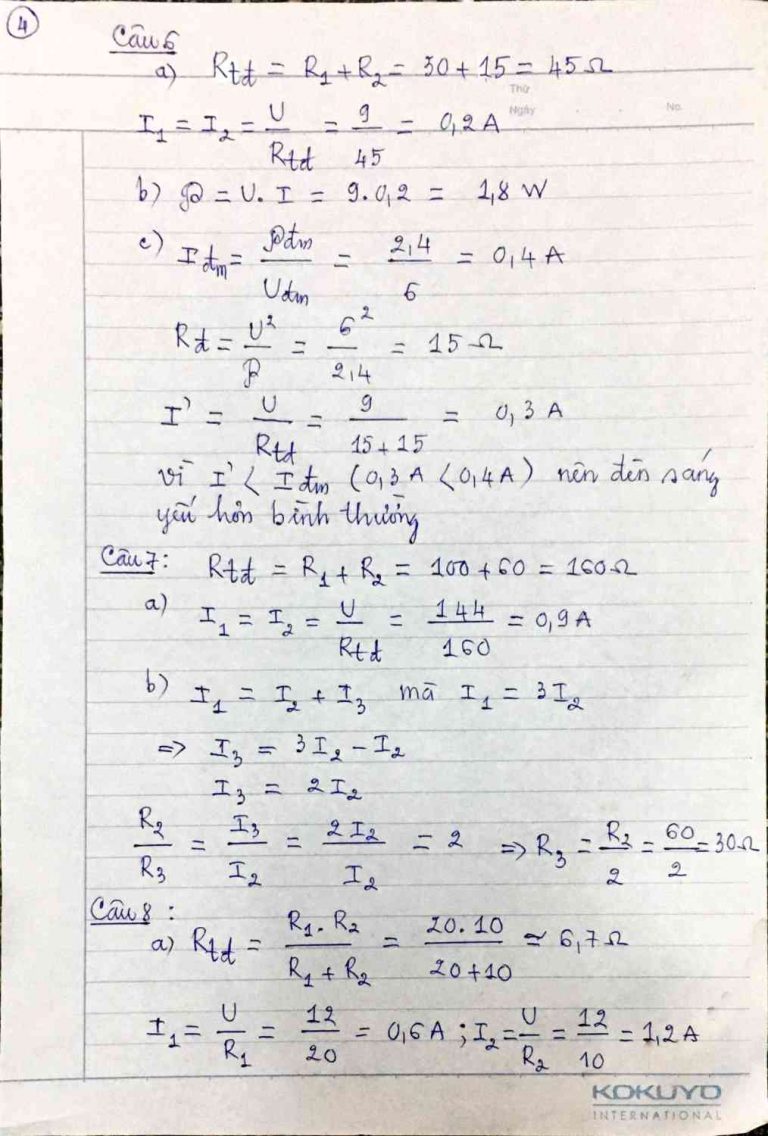 4
Câu 6
a) Rtđ = R₁ + R₂ = 30 + 15 = 45 Ω
Thứ
Ngày No.
I₁ = I₂ = U/Rtđ = 9/45 = 0,2 A
b) 𝒫 = U. I = 9.0,2 = 1,8 W
c) Iđm = 𝒫đm/Uđm = 2,4/6 = 0,4 A
Rđ = U²/𝒫 = 6²/2,4 = 15 Ω
I' = U/Rtđ = 9/15+15 = 0,3 A
vì I' < Iđm (0,3A < 0,4A) nên đèn sáng
yếu hơn bình thường
Câu 7: Rtđ = R₁ + R₂ = 100 + 60 = 160 Ω
a) I₁ = I₂ = U/Rtđ = 144/160 = 0,9 A
b) I₁ = I₂ + I₃ mà I₁ = 3I₂
=> I₃ = 3I₂ - I₂
I₃ = 2I₂
R₂/R₃ = I₃/I₂ = 2I₂/I₂ = 2 => R₃ = R₂/2 = 60/2 = 30 Ω
Câu 8 :
a) Rtđ = R₁. R₂/R₁ + R₂ = 20. 10/20 + 10 ≃ 6,7 Ω
I₁ = U/R₁ = 12/20 = 0,6 A ; I₂ = U/R₂ = 12/10 = 1,2 A
KOKUYO
INTERNATIONAL